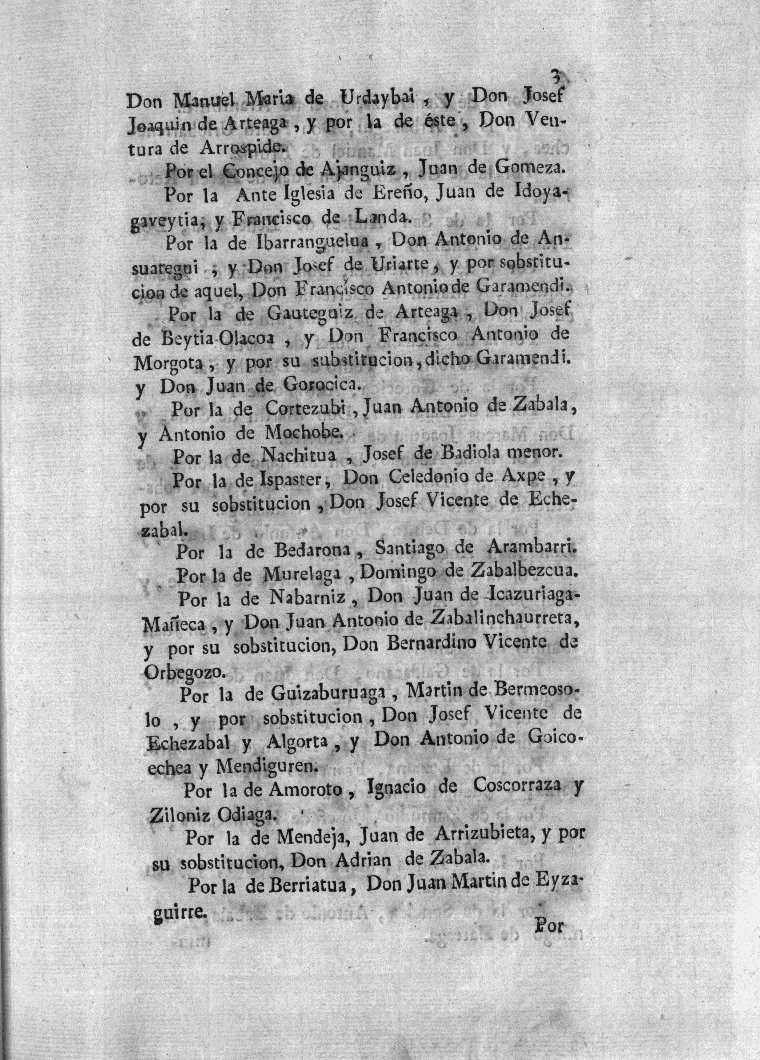 3
Don Manuel Maria de Urdaybai , y Don Josef
Joaquin de Arteaga , y por la de éste , Don Ven-
tura de Arrospide.
Por el Concejo de Ajanguiz , Juan de Gomeza.
Por la Ante Iglesia de Ereño, Juan de Idoya-
gaveytia; y Francisco de Landa.
Por la de Ibarranguelua , Don Antonio de An-
suategui , y Don Josef de Uriarte, y por sobstitu-
cion de aquel, Don Francisco Antonio de Garamendi.
Por la de Gauteguiz de Arteaga , Don Josef
de Beytia Olacoa , y Don Francisco Antonio de
Morgota , y por su substitucion, dicho Garamendi.
y Don Juan de Gorocica.
Por la de Cortezubi , Juan Antonio de Zabala,
y Antonio de Mochobe.
Por la de Nachitua , Josef de Badiola menor.
Por la de Ispaster, Don Celedonio de Axpe , y
por su sobstitucion , Don Josef Vicente de Eche-
zabal.
Por la de Bedarona , Santiago de Arambarri.
Por la de Murelaga , Domingo de Zabalbezcua.
Por la de Nabarniz , Don Juan de Icazuriaga-
Mañeca , y Don Juan Antonio de Zabalinchaurreta,
y por su sobstitucion, Don Bernardino Vicente de
Orbegozo.
Por la de Guizaburuaga , Martin de Bermeoso-
lo , y por sobstitucion , Don Josef Vicente de
Echezabal y Algorta , y Don Antonio de Goico-
echea y Mendiguren.
Por la de Amoroto , Ignacio de Coscorraza y
Ziloniz Odiaga.
Por la de Mendeja, Juan de Arrizubieta, y por
su sobstitucion, Don Adrian de Zabala.
Por la de Berriatua , Don Juan Martin de Eyza-
guirre.
Por